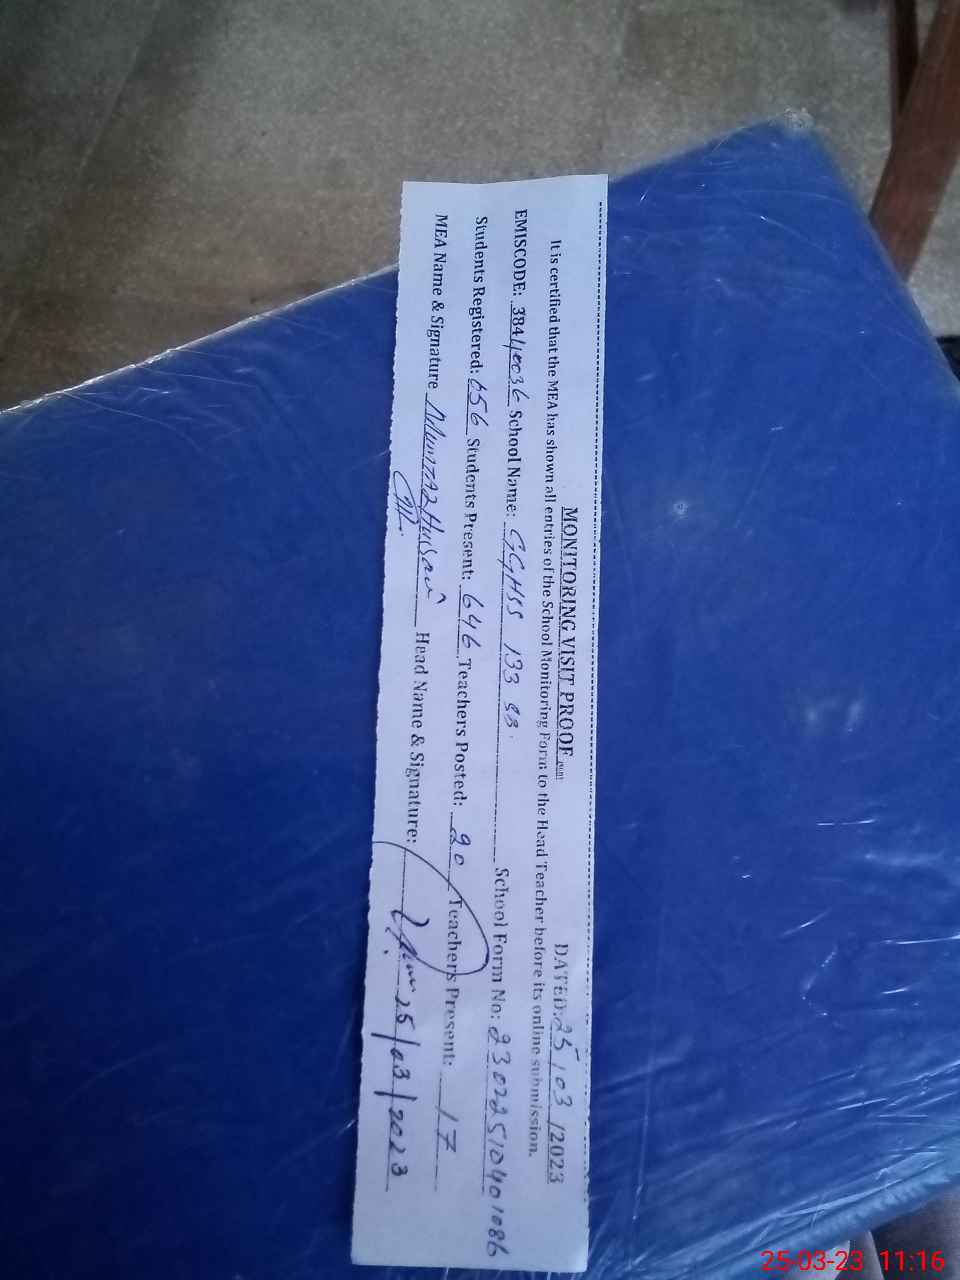 MONITORING VISIT PROOF
DATED: 25/03/2023
It is certified that the MEA has shown all entries of the School Monitoring Form to the Head Teacher before its online submission.
EMISCODE: 38440036 School Name: GGHSS 133 SB. School Form No: 2302251040 1086
Students Registered: 656 Students Present: 646 Teachers Posted: 20 Teachers Present: 17
MEA Name & Signature Mumtaz Hussain Head Name & Signature: 25/03/2023
25-03-23 11:16